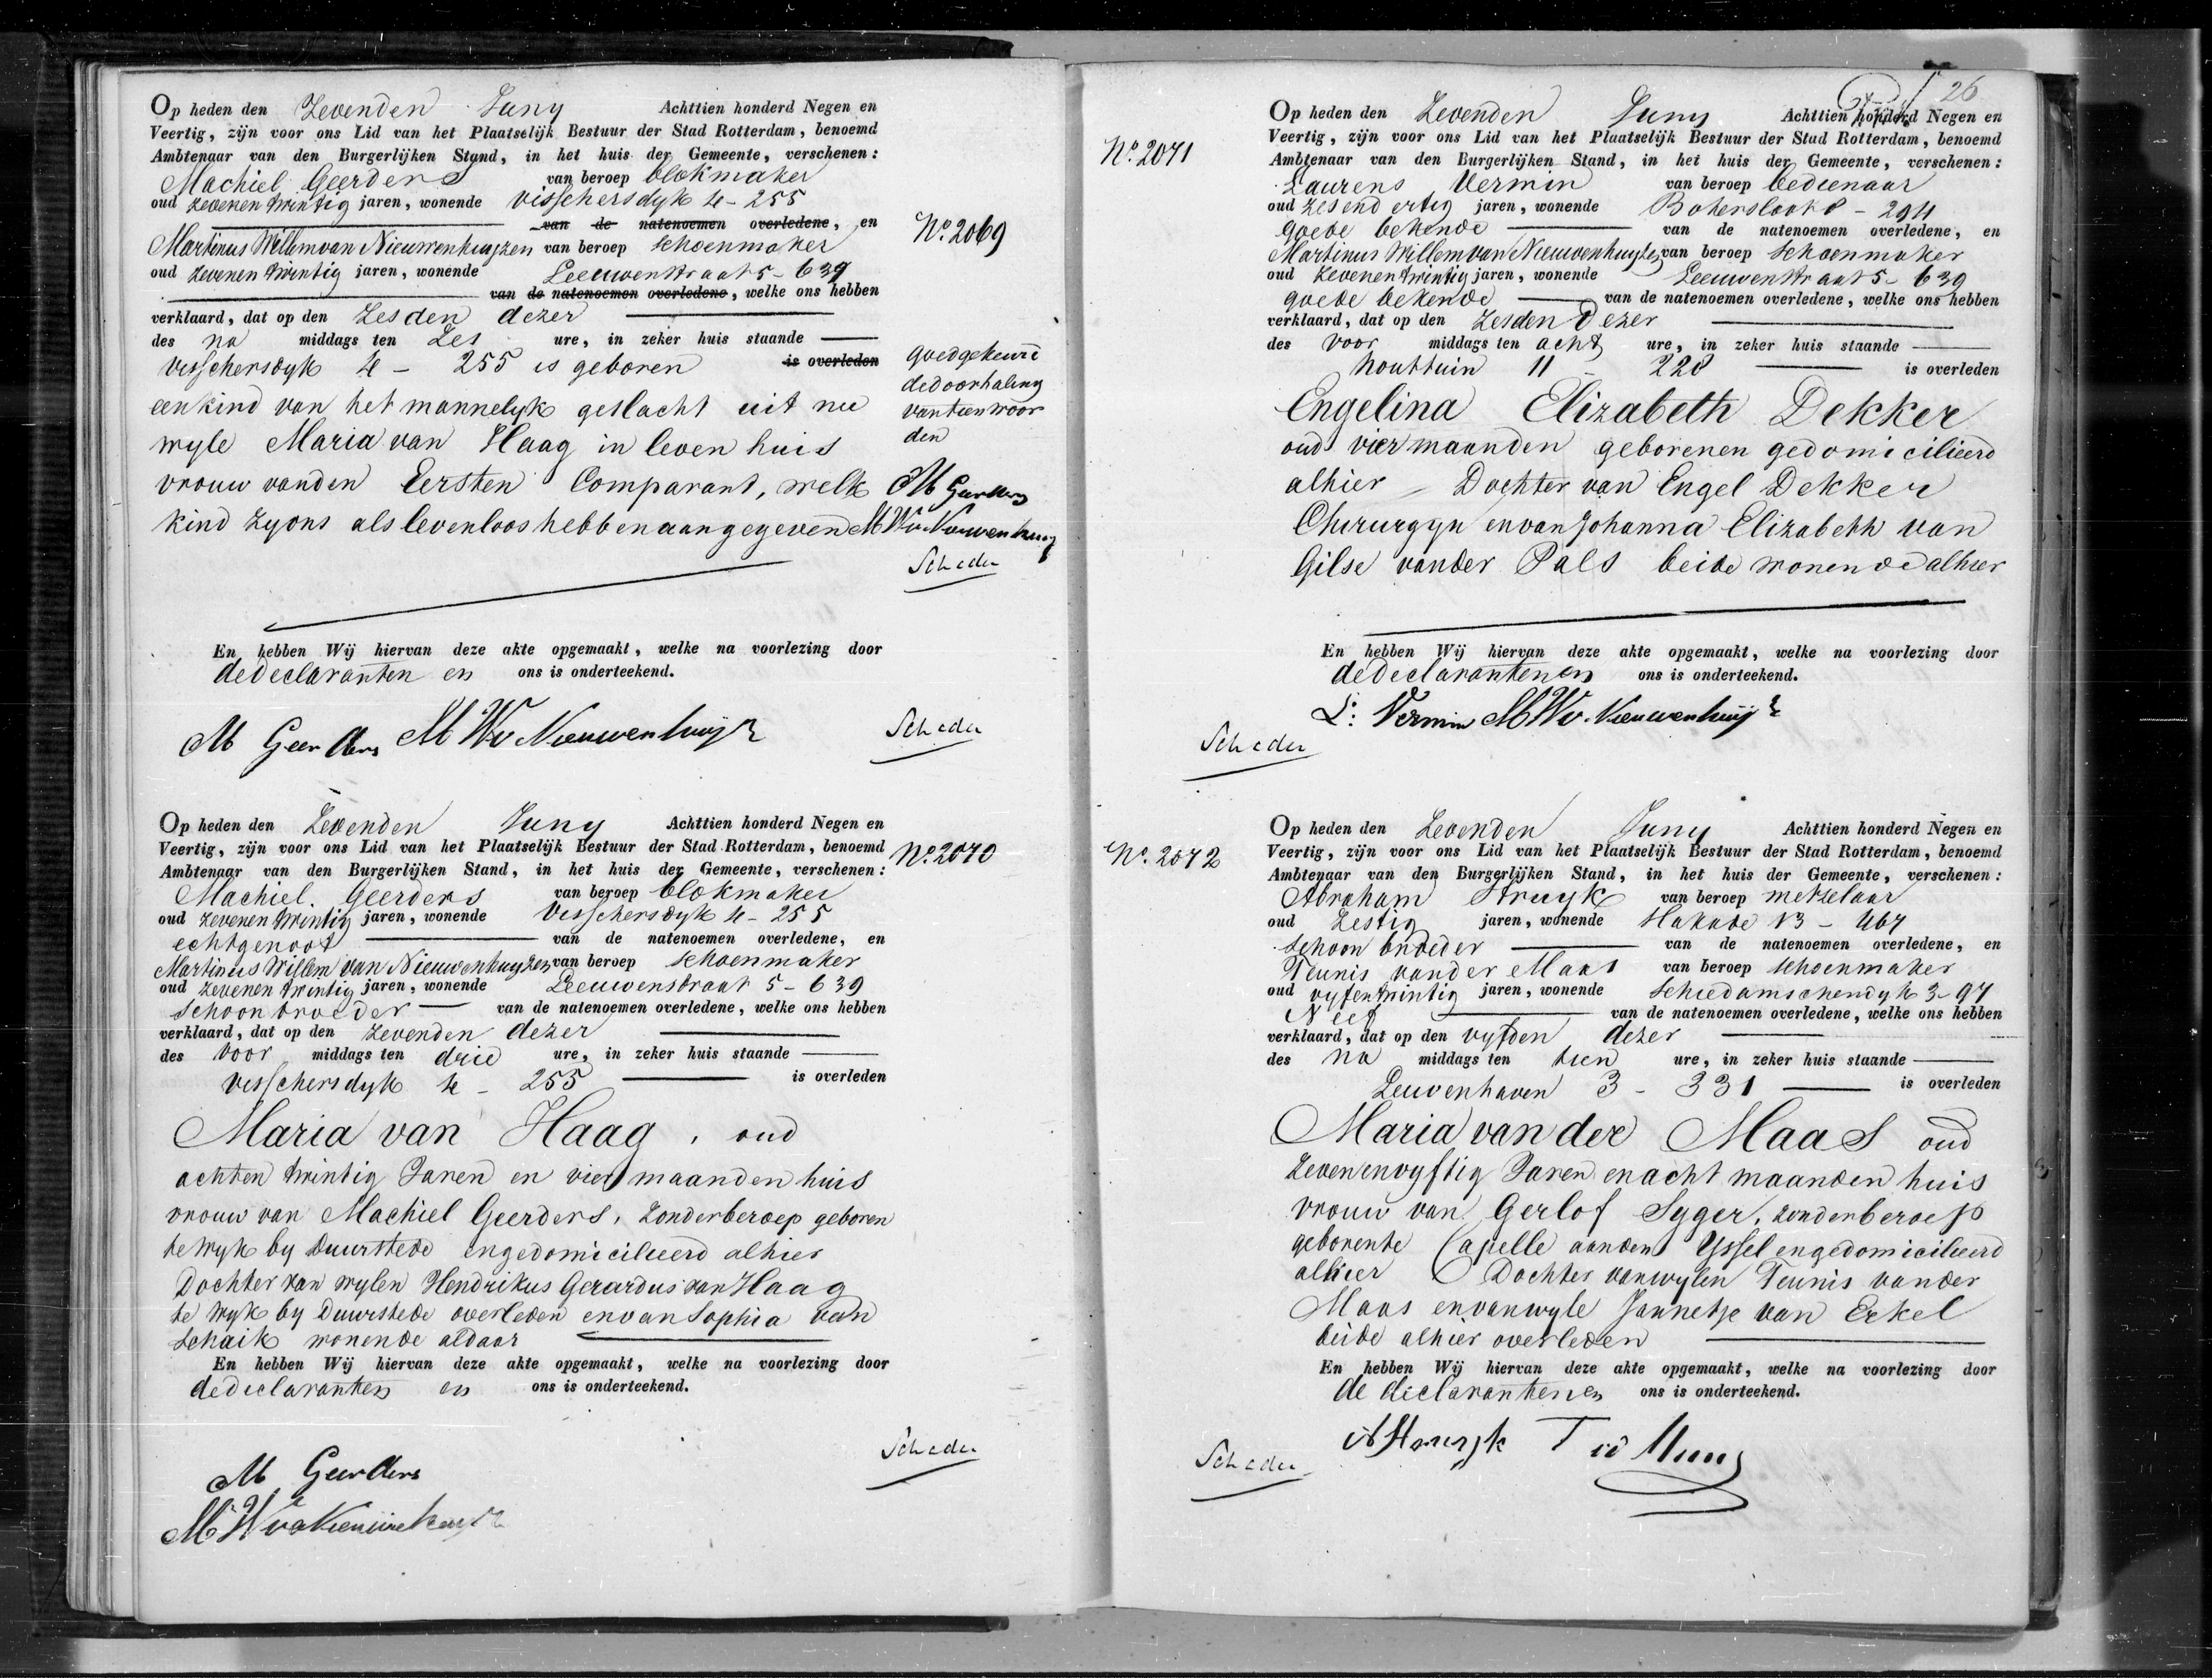 Op heden den Zevenden Juny Achttien honderd Negen en
Veertig, zijn voor ons Lid van het Plaatselijk Bestuur der Stad Rotterdam, benoemd
Ambtenaar van den Burgerlijken Stand, in het huis der Gemeente, verschenen:
Machiel Geerders van beroep blokmaker
oud zevenentwintig jaren, wonende visschersdyk 4-255
van de natenoemen overledene, en
No. 2069
Martinus Willem van Nieuwenhuyzen van beroep schoenmaker
oud zevenentwintig jaren, wonende Leeuwenstraat 5-639
van de natenoemen overledene, welke ons hebben
verklaard, dat op den Zesden dezer
des na middags ten Zes ure, in zeker huis staande
visschersdyk 4 - 255 is geboren is overleden
een kind van het mannelyk geslacht uit nu
wyle Maria van Haag in leven huis
vrouw van den Eersten Comparant, welk
kind zy ons als levenloos hebben aangegeven
goedgekeurd
de doorhaling
van tien woor
den
M Geerders
M W v Nieuwenhuyz
Scheder
En hebben Wij hiervan deze akte opgemaakt, welke na voorlezing door
de declaranten en ons is onderteekend.
M Geerders M W v Nieuwenhuyz
Scheder
Op heden den Zevenden Juny Achttien honderd Negen en
Veertig, zijn voor ons Lid van het Plaatselijk Bestuur der Stad Rotterdam, benoemd
No. 2070
Ambtenaar van den Burgerlijken Stand, in het huis der Gemeente, verschenen:
Machiel Geerders van beroep blokmaker
oud zevenentwintig jaren, wonende visschersdyk 4-255
echtgenoot van de natenoemen overledene, en
Martinus Willem van Nieuwenhuyzen van beroep schoenmaker
oud zevenentwintig jaren, wonende Leeuwenstraat 5-639
schoonbroeder van de natenoemen overledene, welke ons hebben
verklaard, dat op den zevenden dezer
des voor middags ten drie ure, in zeker huis staande
visschersdyk 4 - 255 is overleden
Maria van Haag, oud
achtentwintig Jaren en vier maanden huis
vrouw van Machiel Geerders, zonder beroep geboren
te Wyk by Duurstede en gedomicilieerd alhier
Dochter van wylen Hendrikus Gerardus van Haag
te Wyk by Duurstede overleden en van Sophia van
Schaik wonende aldaar
En hebben Wij hiervan deze akte opgemaakt, welke na voorlezing door
de declaranten en ons is onderteekend.
Scheder
M Geerders
M W v Nieuwenhuyz
26
Op heden den Zevenden Juny Achttien honderd Negen en
No. 2071
Veertig, zijn voor ons Lid van het Plaatselijk Bestuur der Stad Rotterdam, benoemd
Ambtenaar van den Burgerlijken Stand, in het huis der Gemeente, verschenen:
Laurens Vermin van beroep bedienaar
oud zesendertig jaren, wonende Botersloot 8 - 294
goede bekende van de natenoemen overledene, en
Martinus Willem van Nieuwenhuyzen van beroep schoenmaker
oud zevenentwintig jaren, wonende Leeuwenstraat 5-639
goede bekende van de natenoemen overledene, welke ons hebben
verklaard, dat op den zesden dezer
des voor middags ten acht ure, in zeker huis staande
houttuin 11 - 228 is overleden
Engelina Elizabeth Dekker
oud vier maanden geboren en gedomicilieerd
alhier Dochter van Engel Dekker
Chirurgyn en van Johanna Elizabeth van
Gilse vander Pals beide wonende alhier
En hebben Wij hiervan deze akte opgemaakt, welke na voorlezing door
de declaranten en ons is onderteekend.
L: Vermin M W v. Nieuwenhuyz
Scheder
Op heden den Zevenden Juny Achttien honderd Negen en
No. 2072
Veertig, zijn voor ons Lid van het Plaatselijk Bestuur der Stad Rotterdam, benoemd
Ambtenaar van den Burgerlijken Stand, in het huis der Gemeente, verschenen:
Abraham Struyk van beroep metzelaar
oud Zestig jaren, wonende Hakade 13 - 467
schoonbroeder van de natenoemen overledene, en
Teunis vander Maas van beroep schoenmaker
oud vyfentwintig jaren, wonende Schiedamschendyk 3-97
Neef van de natenoemen overledene, welke ons hebben
verklaard, dat op den vyfden dezer
des na middags ten tien ure, in zeker huis staande
Leuvenhaven 3 - 331 is overleden
Maria van der Maas oud
zevenenvyftig Jaren en acht maanden huis
vrouw van Gerlof Syger, zonder beroep
geboren te Capelle aan den Yssel en gedomicilieerd
alhier Dochter van wylen Teunis vander
Maas en van wyle Jannetje van Erkel
beide alhier overleden
En hebben Wij hiervan deze akte opgemaakt, welke na voorlezing door
de declaranten en ons is onderteekend.
A Struyk T vd Maas
Scheder